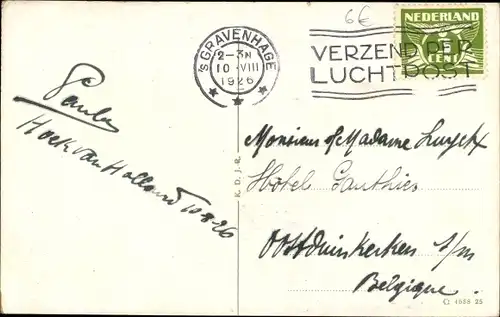 6€
'S GRAVENHAGE
2-3N
10 · VIII
1926
VERZEND PER
LUCHTPOST
NEDERLAND
CENT
Paula
Hoek van Holland 10-8-26
K. D. J. R.
Monsieur & Madame
Hôtel Gauthier
Oostduinkerken s/m
Belgique.
25